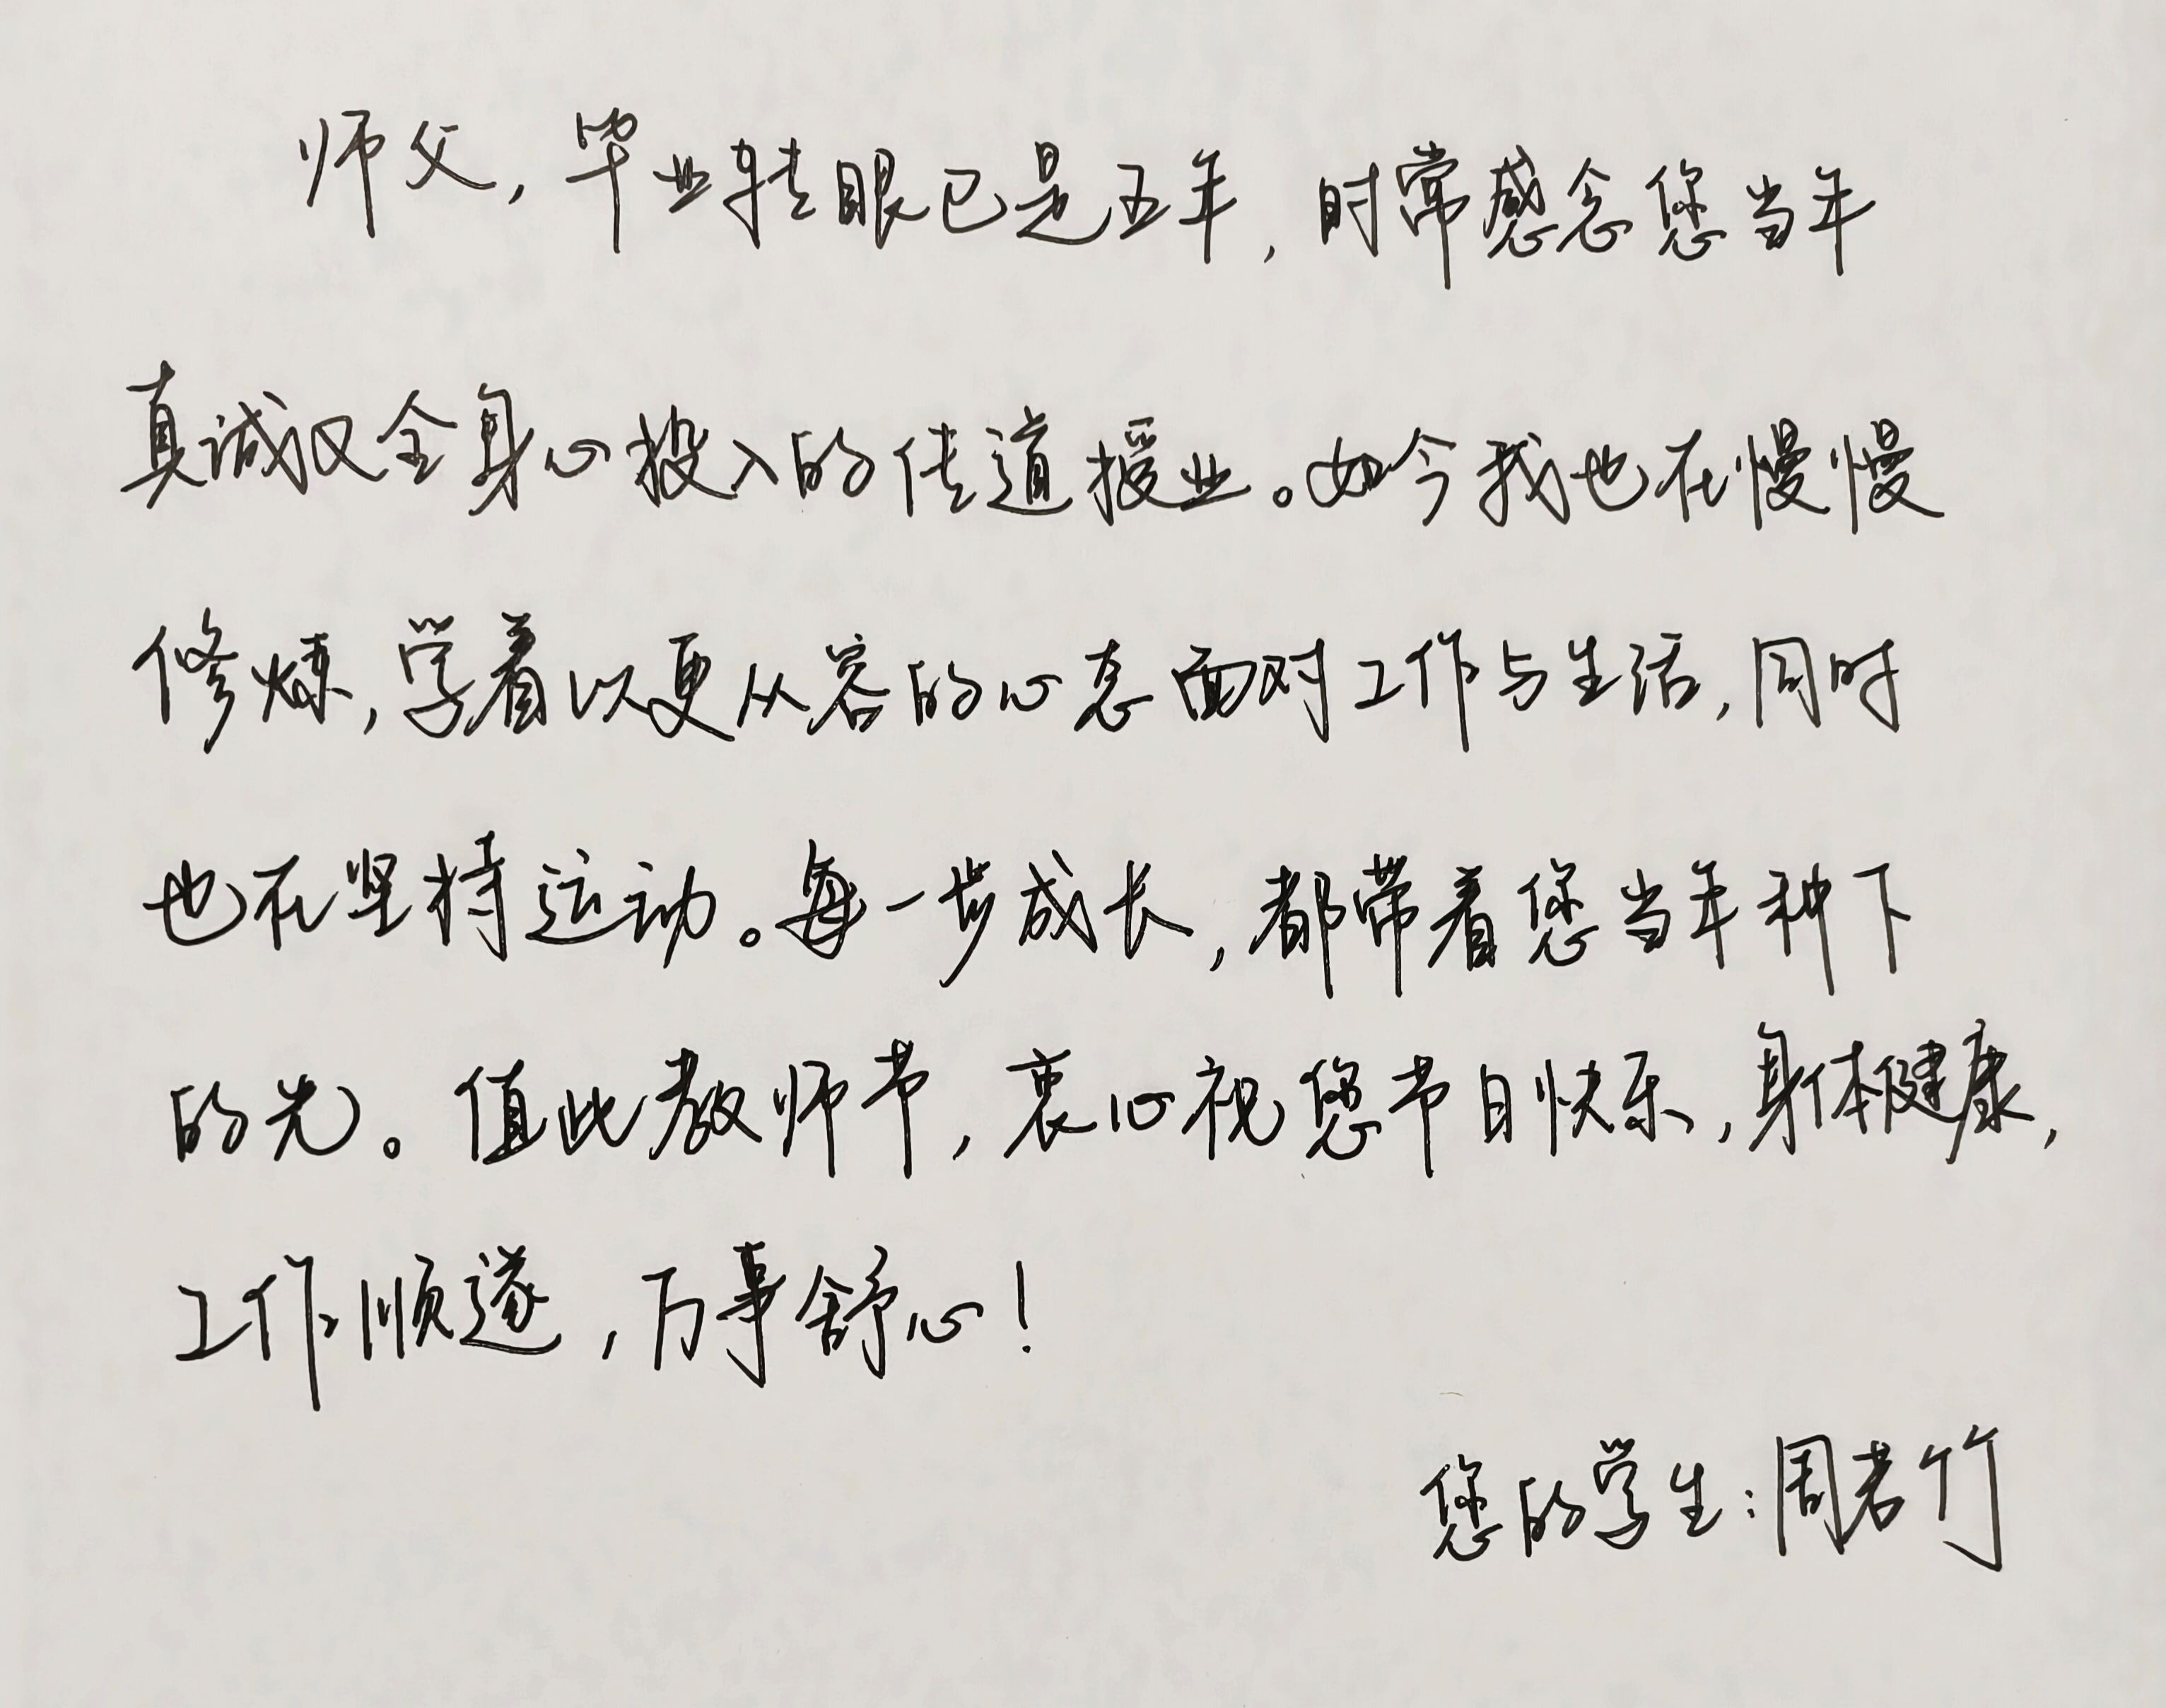 师父，毕业转眼已是五年，时常感念您当年
真诚又全身心投入的传道授业。如今我也在慢慢
修炼，学着以更从容的心态面对工作与生活，同时
也在坚持运动。每一步成长，都带着您当年种下
的光。值此教师节，衷心祝您节日快乐，身体健康，
工作顺遂，万事舒心！
您的学生：周若竹